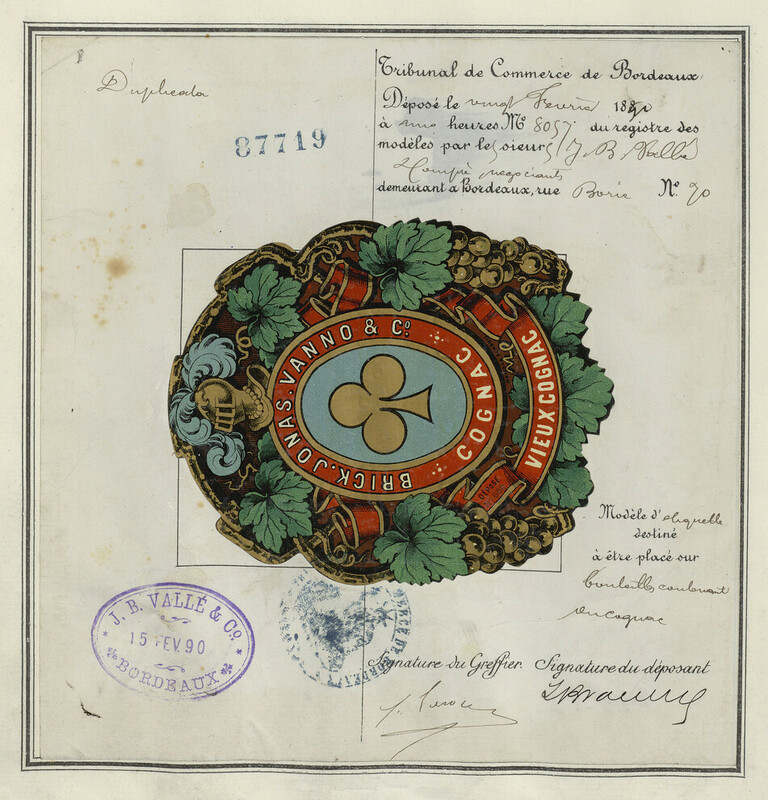 Duplicata
87719
Tribunal de Commerce de Bordeaux
Déposé le vingt Fevrier 1890
à une heures No 8057 du registre des
modèles par les sieurs J B Vallé
& Compie negociants
demeurant à Bordeaux, rue Borie No. 90
BRICK. JONAS. VANNO & Co.
COGNAC
VIEUX COGNAC
DÉPOSÉ
Modèle d'etiquette
destiné
à être placé sur
bouteilles contenant
du cognac
J. B. VALLÉ & Co.
15 FEV. 90
BORDEAUX
Signature du Greffier. Signature du déposant